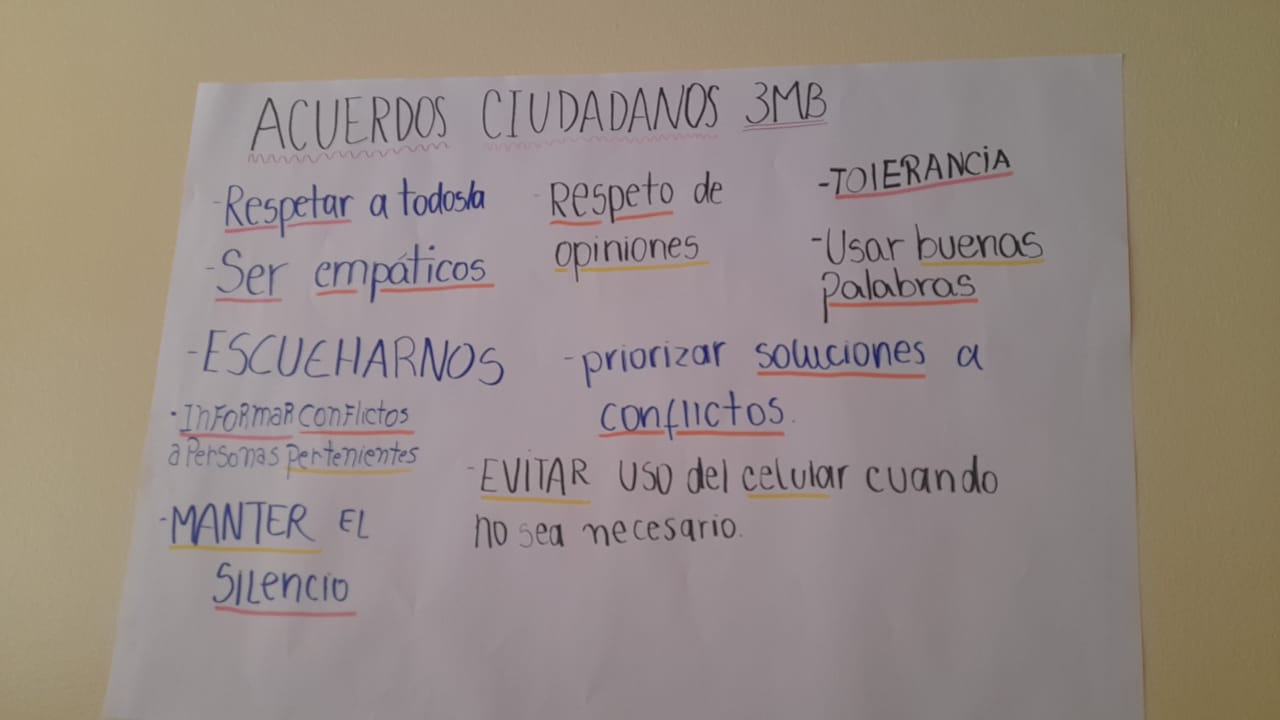 ACUERDOS CIUDADANOS 3MB
-Respetar a todos/a
-Ser empáticos
-Respeto de
opiniones
-TOlERANCiA
-Usar buenas
palabras
-ESCUCHARNOS
-priorizar soluciones a
conflictos.
·InFORmaR conFlictos
a Personas pertenientes
-EVITAR USO del celular cuando
no sea necesario.
-MANTER EL
SILencio